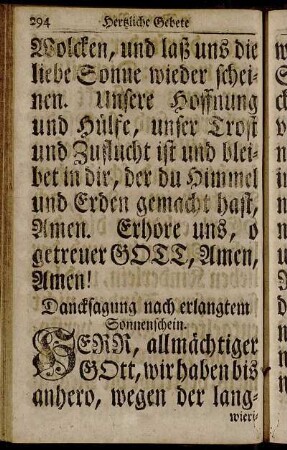 294 Hertzliche Gebete
Wolcken, und laß uns die
liebe Sonne wieder schei-
nen. Unsere Hoffnung
und Hülfe, unser Trost
und Zuflucht ist und blei-
bet in dir, der du Himmel
und Erden gemacht hast,
Amen. Erhöre uns, o
getreuer GOTT, Amen,
Amen!
Dancksagung nach erlangtem
Sonnenschein.
HERR, allmächtiger
GOtt, wir haben bis
anhero, wegen der lang-
wieri-